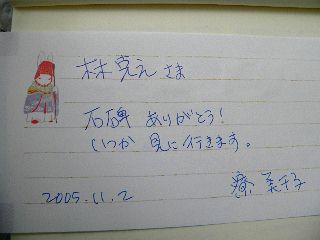 林克え さま
石碑 ありがとう!
いつか 見に行きます。
2005.11.2
寮 美千子